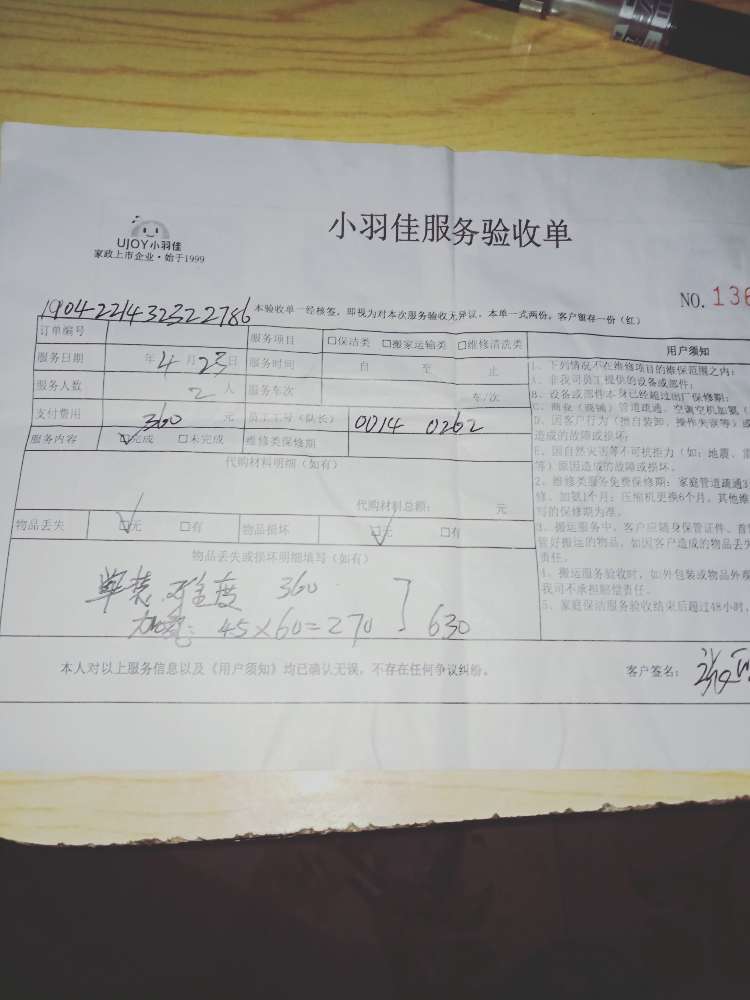 UJOY小羽佳
家政上市企业·始于1999
小羽佳服务验收单
NO.136
1904221432322786
本验收单一经核签，即视为对本次服务验收无异议，本单一式两份。客户留存一份（红）
订单编号 服务项目 □保洁类 □搬家运输类 □维修清洗类 用户须知
服务日期 年4月23日 服务时间 自 至 止
服务人数 2人 服务车次 车/次
支付费用 360元 员工工号（队长） 0014 0262
服务内容 ☑完成 □未完成 维修类保修期
代购材料明细（如有）
代购材料总额： 元
物品丢失 ☑无 □有 物品损坏 ☑无 □有
物品丢失或损坏明细填写（如有）
单装 难度 360
45×60=270 630
1、下列情况不在维修项目的维保范围之内：
A、非我司员工提供的设备或部件；
B、设备或部件本身已经超过出厂保修期；
C、商业（商铺）管道疏通、空调空机加氨（
D、因客户行为（擅自装卸、操作失误等）或
造成的故障或损坏；
E、因自然灾害等不可抗力（如：地震、雷
等）原因造成的故障或损坏。
2、维修类服务免费保修期：家庭管道疏通3
修、加氨1个月；压缩机更换6个月。其他维
写的保修期为准。
3、搬运服务中，客户应随身保管证件、首
管好搬运的物品，如因客户造成的物品丢失
责任。
4、搬运服务验收时，如外包装或物品外观
我司不承担赔偿责任。
5、家庭保洁服务验收结束后超过48小时，
本人对以上服务信息以及《用户须知》均已确认无误，不存在任何争议纠纷。
客户签名：